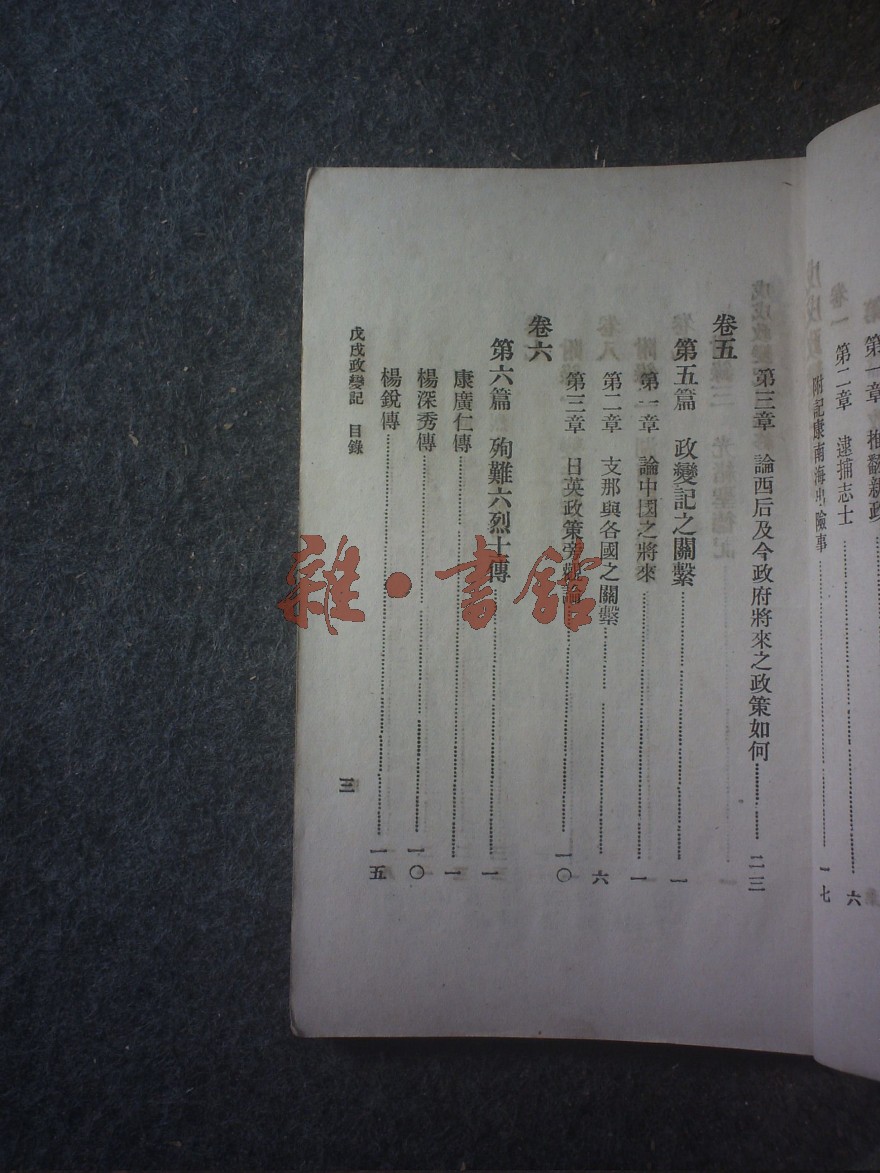 第一章 推翻新政
第二章 逮捕志士……六
附記康南海出險事……一七
第三章 論西后及今政府將來之政策如何……二三
卷五
第五篇 政變記之關繫……一
第一章 論中國之將來……一
第二章 支那與各國之關繫……六
第三章 日英政策旁觀論……一〇
卷六
第六篇 殉難六烈士傳……一
康廣仁傳……一
楊深秀傳……一〇
楊銳傳……一五
戊戌政變記 目錄
三
雜·書館